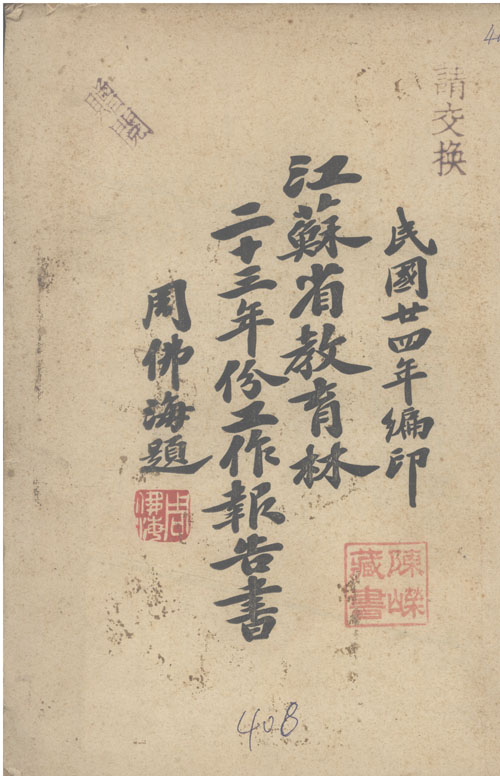 請交换
民國廿四年編印
江蘇省教育林
二十三年份工作報告書
周佛海題
周佛海
陳嶸
藏書
408